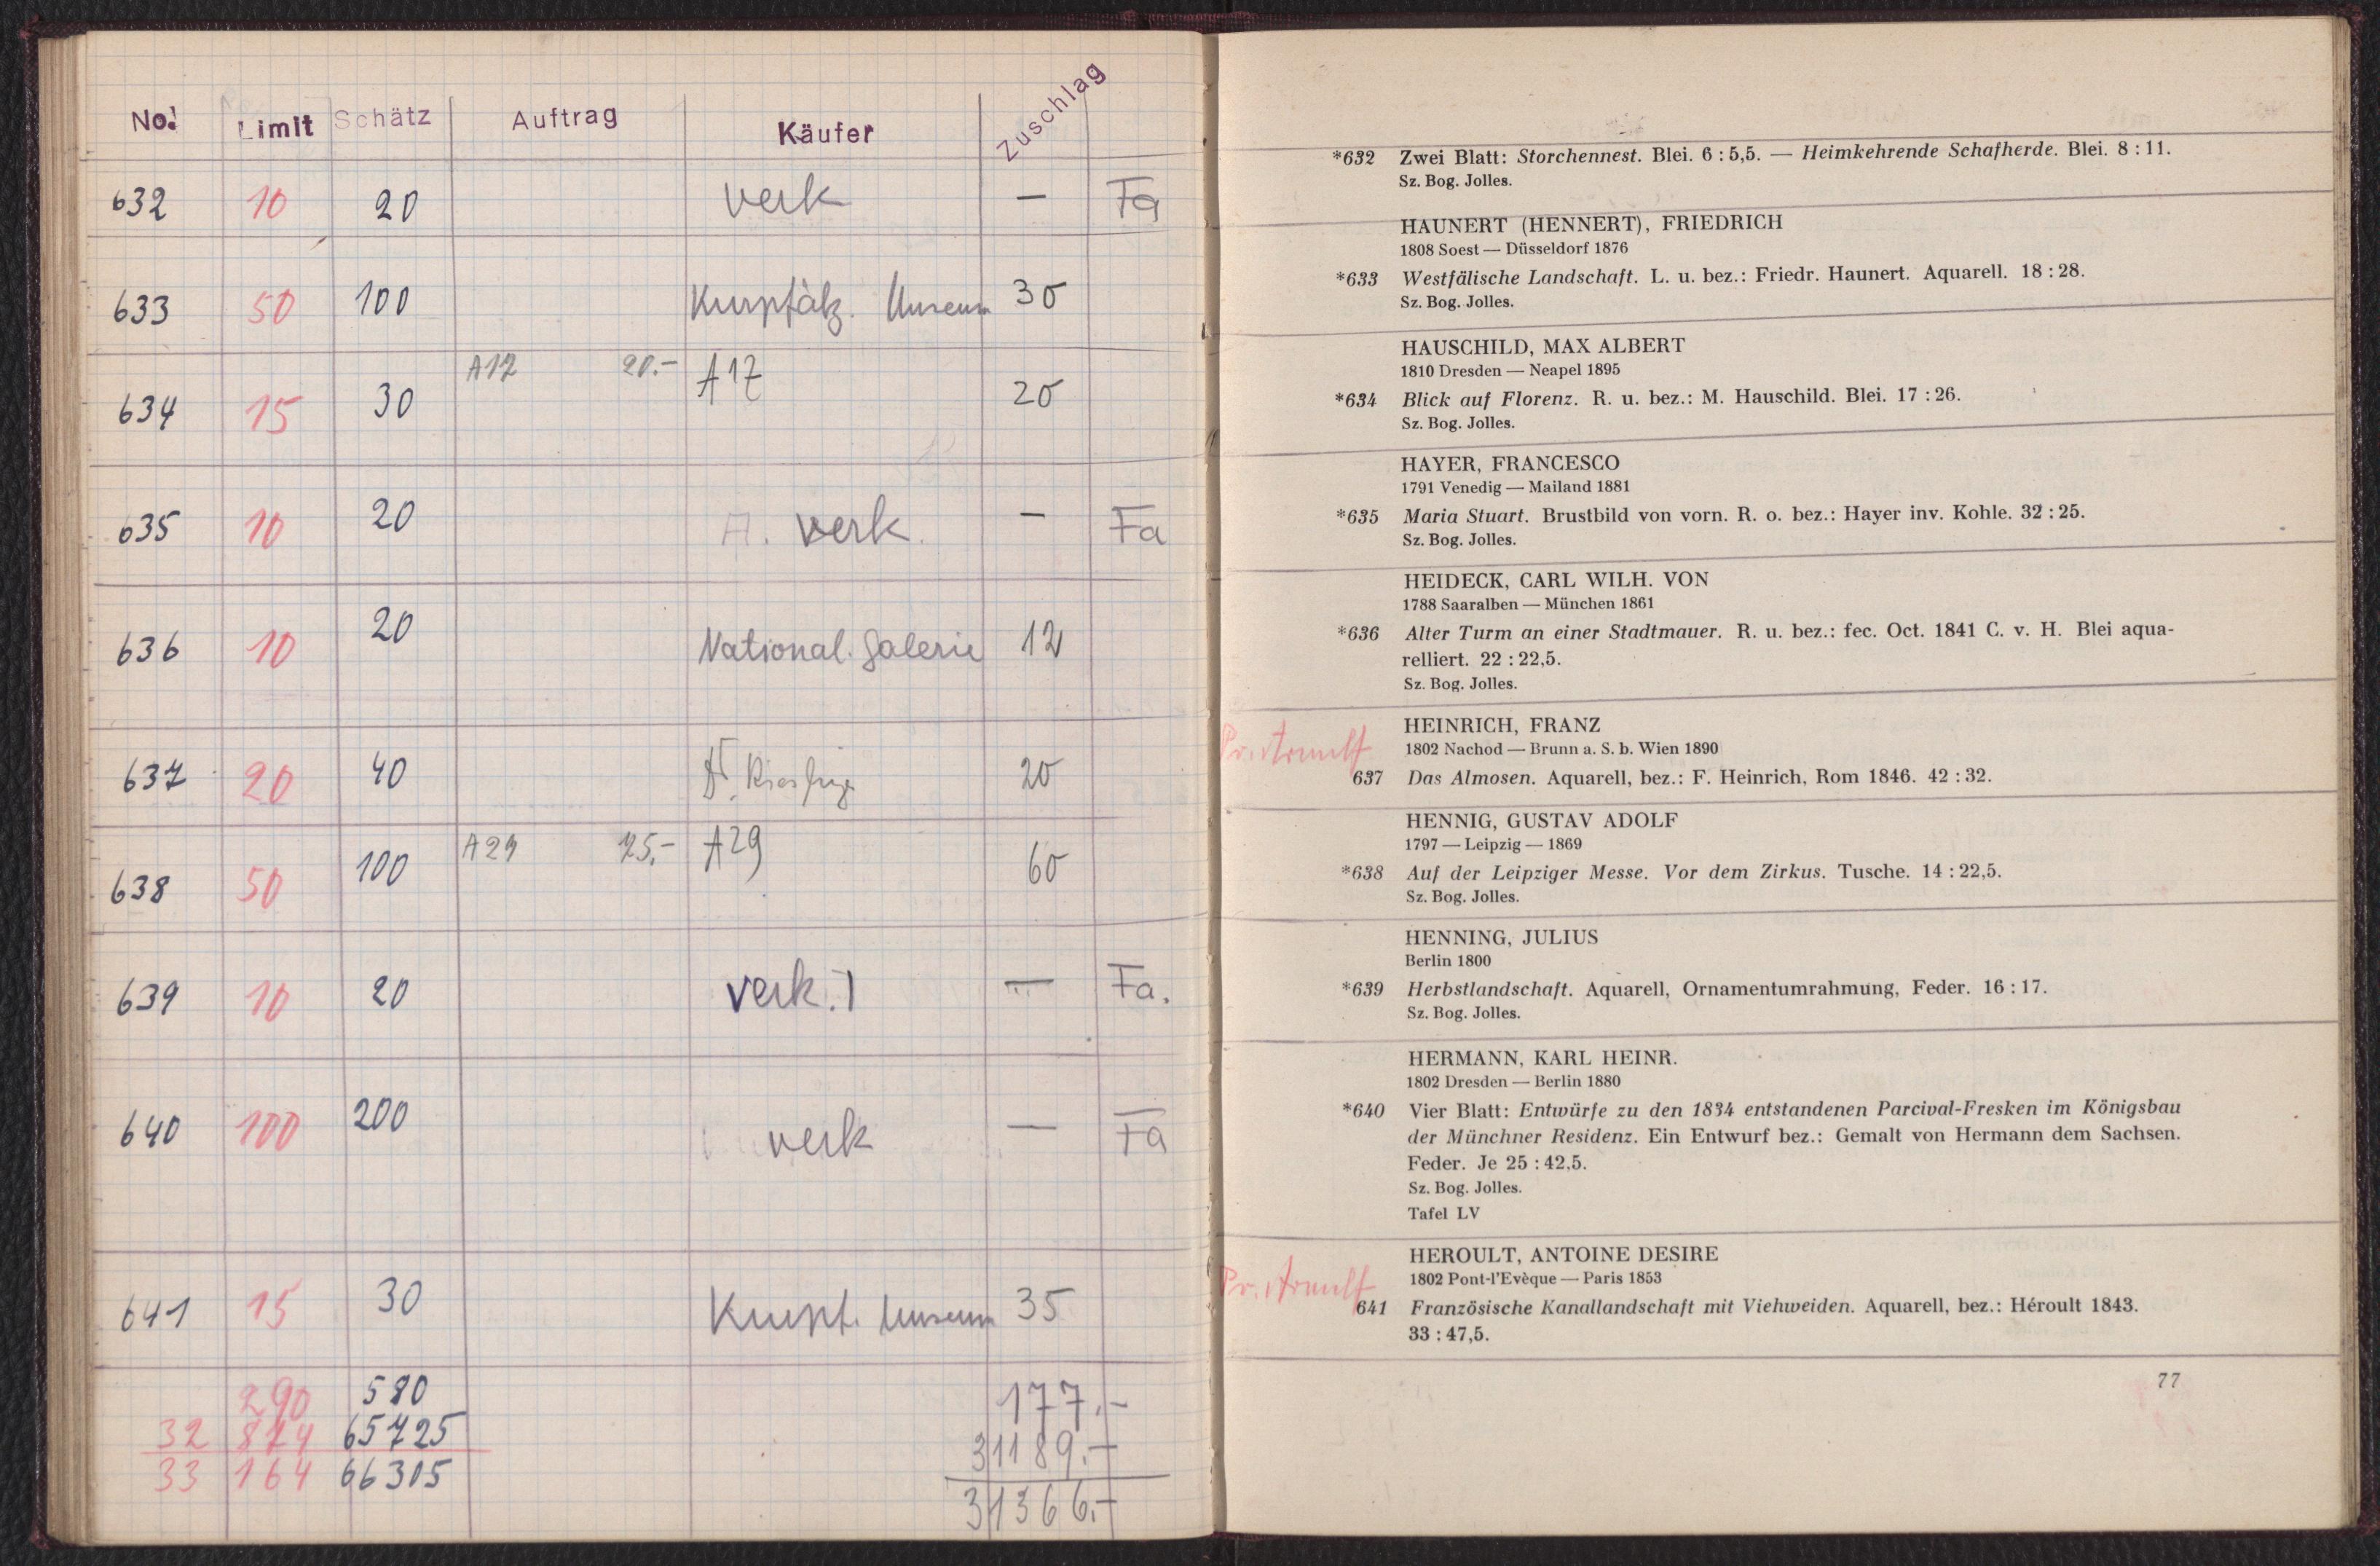 No. Limit Schätz Auftrag Käufer Zuschlag
632 10 20 verk — Fa
633 50 100 Kurpfälz. Museum 30
634 15 30 A17 20.- A17 20
635 10 20 verk. — Fa
636 10 20 National. Galerie 12
637 20 40 Dr. 20
638 50 100 A29 A29 60
639 10 20 verk. — Fa.
640 100 200 verk — Fa
641 15 30 Kurpf. Museum 35
290 580 177.-
32 874 65725 31189.-
33 164 66305 31366.-
*632 Zwei Blatt: Storchennest. Blei. 6 : 5,5. — Heimkehrende Schafherde. Blei. 8 : 11.
Sz. Bog. Jolles.
HAUNERT (HENNERT), FRIEDRICH
1808 Soest — Düsseldorf 1876
*633 Westfälische Landschaft. L. u. bez.: Friedr. Haunert. Aquarell. 18 : 28.
Sz. Bog. Jolles.
HAUSCHILD, MAX ALBERT
1810 Dresden — Neapel 1895
*634 Blick auf Florenz. R. u. bez.: M. Hauschild. Blei. 17 : 26.
Sz. Bog. Jolles.
HAYER, FRANCESCO
1791 Venedig — Mailand 1881
*635 Maria Stuart. Brustbild von vorn. R. o. bez.: Hayer inv. Kohle. 32 : 25.
Sz. Bog. Jolles.
HEIDECK, CARL WILH. VON
1788 Saaralben — München 1861
*636 Alter Turm an einer Stadtmauer. R. u. bez.: fec. Oct. 1841 C. v. H. Blei aqua-
relliert. 22 : 22,5.
Sz. Bog. Jolles.
HEINRICH, FRANZ
1802 Nachod — Brunn a. S. b. Wien 1890
637 Das Almosen. Aquarell, bez.: F. Heinrich, Rom 1846. 42 : 32.
HENNIG, GUSTAV ADOLF
1797 — Leipzig — 1869
*638 Auf der Leipziger Messe. Vor dem Zirkus. Tusche. 14 : 22,5.
Sz. Bog. Jolles.
HENNING, JULIUS
Berlin 1800
*639 Herbstlandschaft. Aquarell, Ornamentumrahmung, Feder. 16 : 17.
Sz. Bog. Jolles.
HERMANN, KARL HEINR.
1802 Dresden — Berlin 1880
*640 Vier Blatt: Entwürfe zu den 1834 entstandenen Parcival-Fresken im Königsbau
der Münchner Residenz. Ein Entwurf bez.: Gemalt von Hermann dem Sachsen.
Feder. Je 25 : 42,5.
Sz. Bog. Jolles.
Tafel LV
HEROULT, ANTOINE DESIRE
1802 Pont-l'Evèque — Paris 1853
641 Französische Kanallandschaft mit Viehweiden. Aquarell, bez.: Héroult 1843.
33 : 47,5.
77